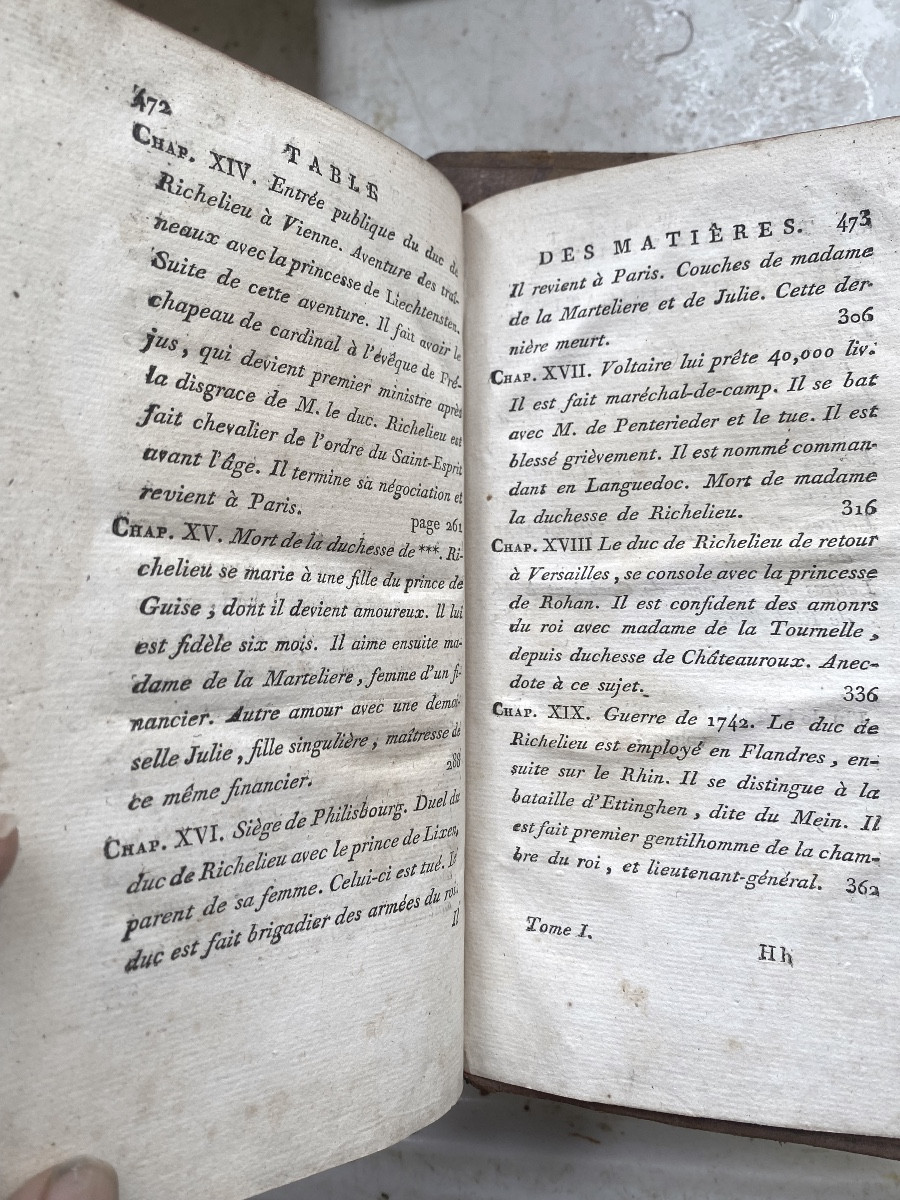 472
TABLE
CHAP. XIV. Entrée publique du duc de
Richelieu à Vienne. Aventure des traî-
neaux avec la princesse de Liechtensten.
Suite de cette aventure. Il fait avoir le
chapeau de cardinal à l'évêque de Fré-
jus, qui devient premier ministre après
la disgrace de M. le duc. Richelieu est
fait chevalier de l'ordre du Saint-Esprit
avant l'âge. Il termine sa négociation et
revient à Paris. page 261
CHAP. XV. Mort de la duchesse de ***. Ri-
chelieu se marie à une fille du prince de
Guise ; dont il devient amoureux. Il lui
est fidèle six mois. Il aime ensuite ma-
dame de la Marteliere, femme d'un fi-
nancier. Autre amour avec une demoi-
selle Julie, fille singulière, maîtresse de
ce même financier. 288
CHAP. XVI. Siège de Philisbourg. Duel du
duc de Richelieu avec le prince de Lixen,
parent de sa femme. Celui-ci est tué. Le
duc est fait brigadier des armées du roi.
Il
DES MATIÈRES. 473
Il revient à Paris. Couches de madame
de la Marteliere et de Julie. Cette der-
nière meurt. 306
CHAP. XVII. Voltaire lui prête 40,000 liv.
Il est fait maréchal-de-camp. Il se bat
avec M. de Penterieder et le tue. Il est
blessé grièvement. Il est nommé comman-
dant en Languedoc. Mort de madame
la duchesse de Richelieu. 316
CHAP. XVIII Le duc de Richelieu de retour
à Versailles, se console avec la princesse
de Rohan. Il est confident des amonrs
du roi avec madame de la Tournelle,
depuis duchesse de Châteauroux. Anec-
dote à ce sujet. 336
CHAP. XIX. Guerre de 1742. Le duc de
Richelieu est employé en Flandres, en-
suite sur le Rhin. Il se distingue à la
bataille d'Ettinghen, dite du Mein. Il
est fait premier gentilhomme de la cham-
bre du roi, et lieutenant-général. 362
Tome I.
Hh